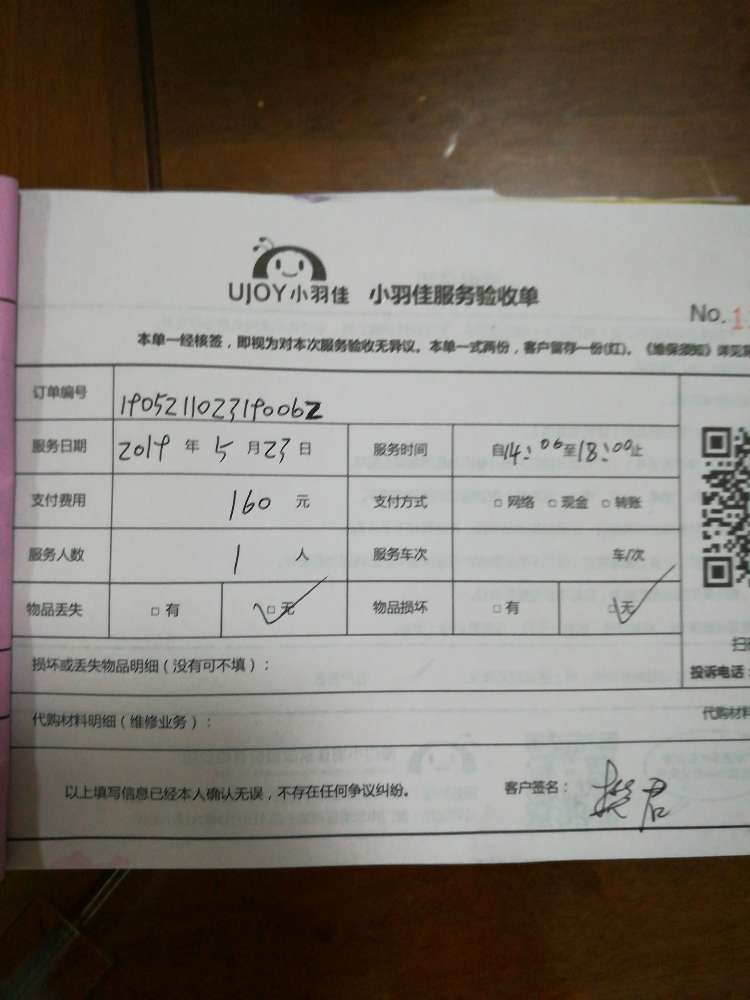 UJOY小羽佳 小羽佳服务验收单
No. 1
本单一经核签，即视为对本次服务验收无异议。本单一式两份，客户留存一份(红)。《维保须知》详见
订单编号 1905211023190062
服务日期 2019 年 5 月 23 日 服务时间 自14:06至18:00止
支付费用 160 元 支付方式 □ 网络 □ 现金 □ 转账
服务人数 1 人 服务车次 车/次
物品丢失 □ 有 □ 无 物品损坏 □ 有 □ 无
损坏或丢失物品明细（没有可不填）：
投诉电话：
代购材料明细（维修业务）：
代购材料
以上填写信息已经本人确认无误，不存在任何争议纠纷。 客户签名：